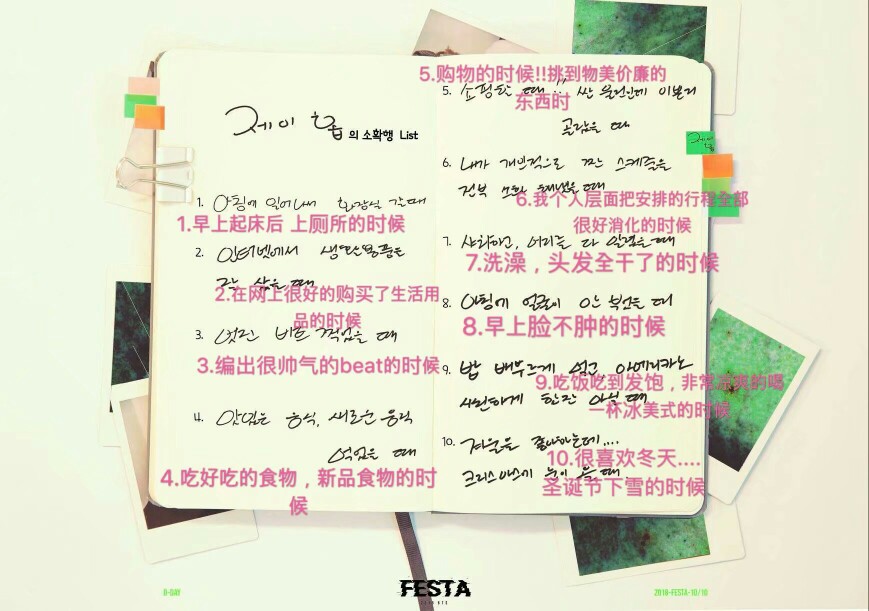 제이홉의 소확행 List
1. 아침에 일어나서 화장실 갈 때
1.早上起床后 上厕所的时候
2. 인터넷에서 생활용품을
잘 샀을 때
2.在网上很好的购买了生活用
品的时候
3. 멋진 비트 찍었을 때
3.编出很帅气的beat的时候
4. 맛있는 음식, 새로운 음식
먹었을 때
4.吃好吃的食物，新品食物的时
候
5.购物的时候!!挑到物美价廉的
东西时
5. 쇼핑할 때!! 싼 물건인데 이쁜거
골랐을 때
6. 내가 개인적으로 짠 스케줄을
전부 소화 해냈을 때
6.我个人层面把安排的行程全部
很好消化的时候
7. 샤워하고, 머리를 다 말렸을 때
7.洗澡，头发全干了的时候
8. 아침에 얼굴이 안 부었을 때
8.早上脸不肿的时候
9. 밥 배부르게 먹고, 아메리카노
시원하게 한잔 마실 때
9.吃饭吃到发饱，非常凉爽的喝
一杯冰美式的时候
10. 겨울을 좋아하는데....
크리스마스에 눈이 올 때.
10.很喜欢冬天....
圣诞节下雪的时候
제이홉
D-DAY
FESTA
2018 BTS
2018-FESTA-10/10